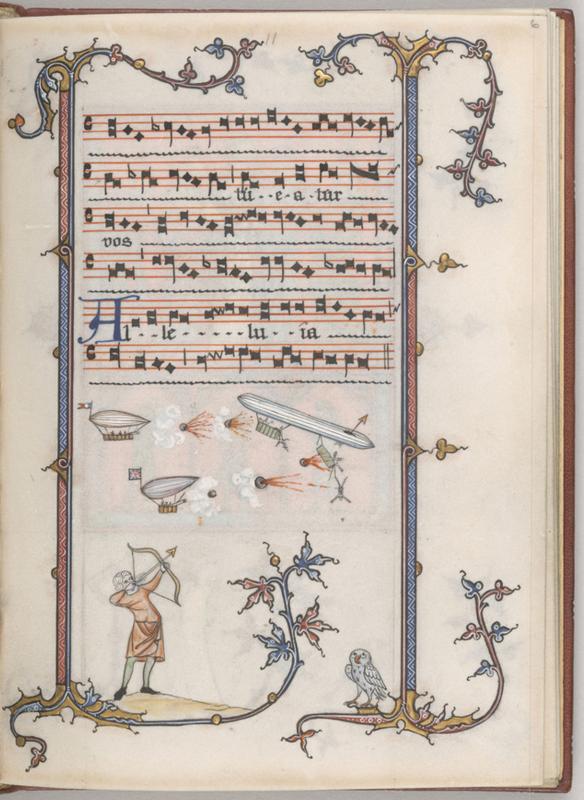 11
tu - - e - a - tur
vos
Al - - le - - - - - - lu - - ia